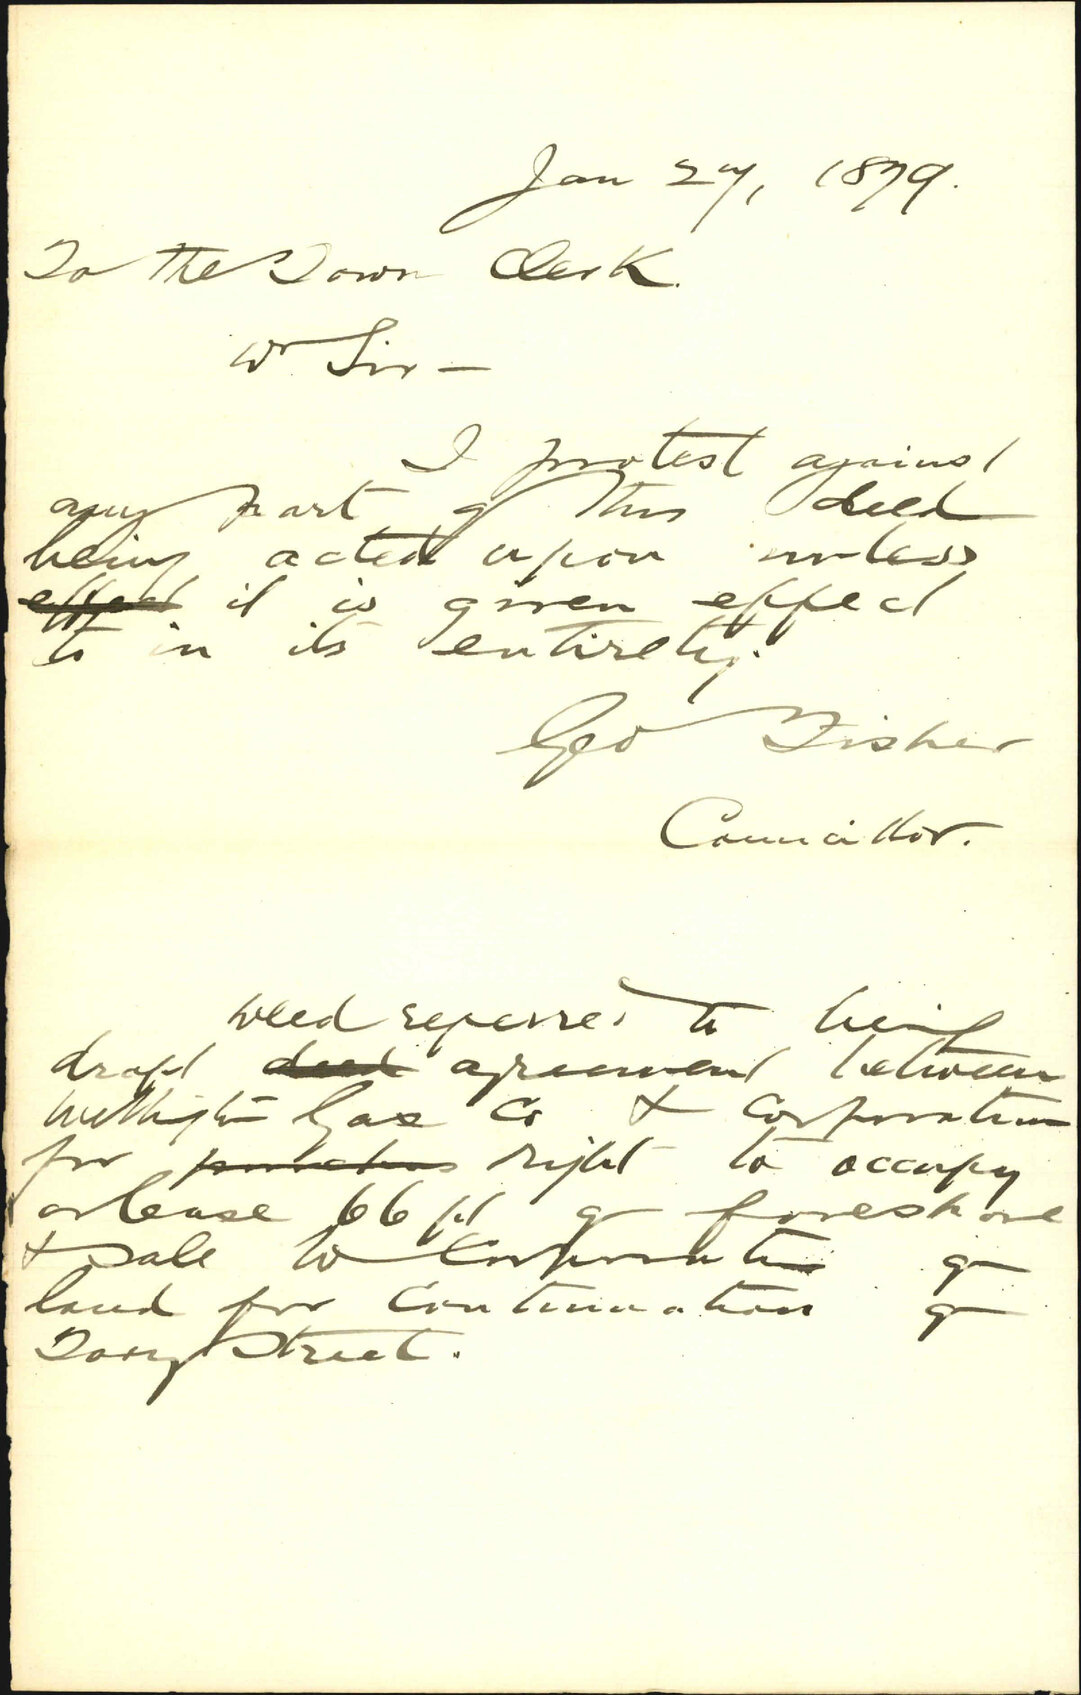 Jan 27, 1879.
To the Town Clerk.
Dr Sir —
I protest against
any part of this deed
being acted upon unless
effect it is given effect
to in its entirety.
Geo Fisher
Councillor.
Deed referred to being
draft deed agreement between
Wellington Gas Co & Corporation
for purchase right to occupy
or lease 66 ft of foreshore
& sale to Corporation of
land for continuation of
Tory Street.